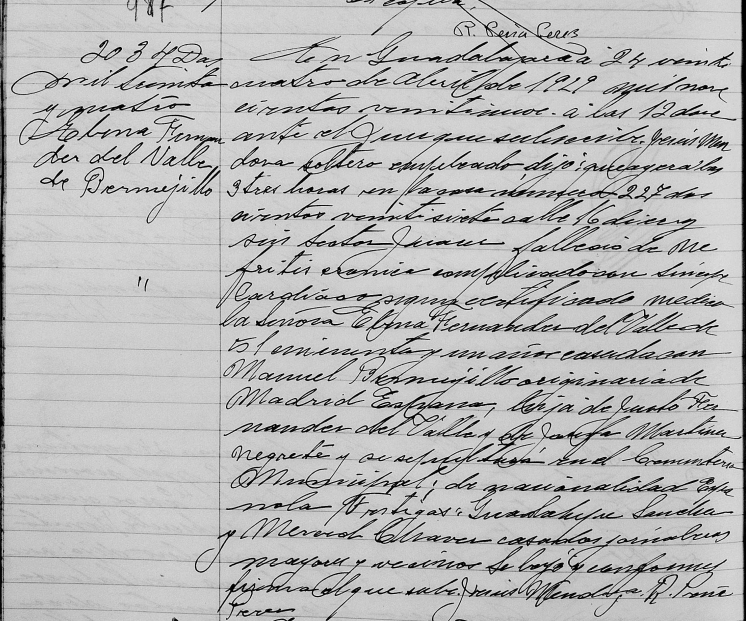 987
R. Peña Perez
2034 Dos
mil treinta
y cuatro
Elena Fernan
dez del Valle
de Bermejillo
"
En Guadalajara a 24 veinti
cuatro de Abril de 1929 mil nove
cientos veintinueve a las 12 doce
ante el Juez que subscribe. Jesús Men
doza soltero empleado dijo: que ayer a las
3 tres horas en la casa numero 227 dos
cientos veinti siete calle 16 diez y
seis Sector Juarez fallecio de Ne
fritis cronica complicado con Sincope
Cardiaco segun certificado medico
la Señora Elena Fernandez del Valle de
51 cincuenta y un años casada con
Manuel Bermejillo originaria de
Madrid España, hija de Justo Fer
nandez del Valle y de Josefa Martinez
Negrete y se sepultará en el Cementerio
Municipal; de nacionalidad Espa
ñola Testigos: Guadalupe Sanchez
y Merced Chavez casados jornaleros
mayores y vecinos Se leyó y conformes
firma el que sabe. Jesús Mendoza. R. Peña
Perez